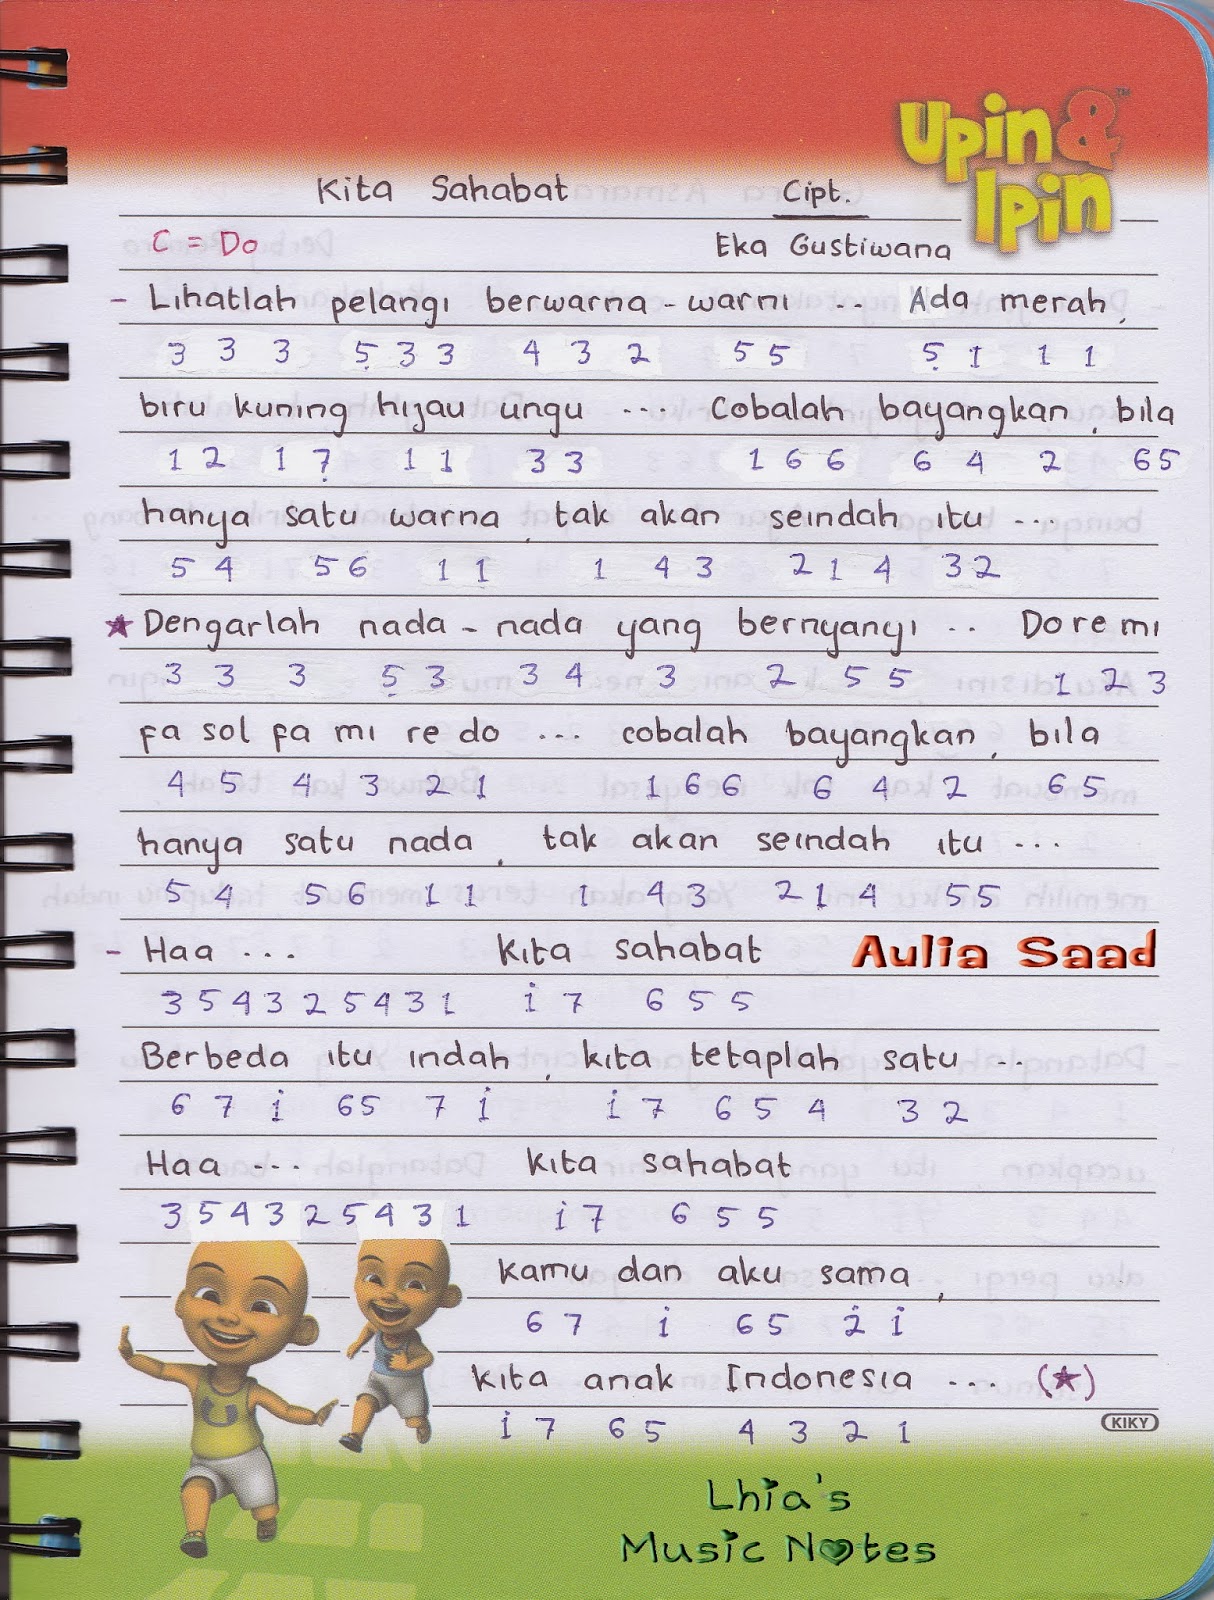 Upin &™
Ipin
Kita Sahabat Cipt.
C = Do Eka Gustiwana
- Lihatlah pelangi berwarna - warni ... Ada merah,
3 3 3 5̣ 3 3 4 3 2 5 5 5̣ 1 1 1
biru kuning hijau ungu .... Cobalah bayangkan, bila
1 2 1 7̣ 1 1 3 3 1 6 6 6 4 2 6 5
hanya satu warna, tak akan seindah itu ...
5 4 5 6 1 1 1 4 3 2 1 4 3 2
★ Dengarlah nada - nada yang bernyanyi .. Do re mi
3 3 3 5̣ 3 3 4 3 2 5 5 1 2 3
fa sol fa mi re do ... cobalah bayangkan, bila
4 5 4 3 2 1 1 6 6 6 4 2 6 5
hanya satu nada, tak akan seindah itu ...
5 4 5 6 1 1 1 4 3 2 1 4 5 5
- Haa ... Kita sahabat Aulia Saad
3 5 4 3 2 5 4 3 1 i 7 6 5 5
Berbeda itu indah, kita tetaplah satu ...
6 7 i 6 5 7 i i 7 6 5 4 3 2
Haa ... kita sahabat
3 5 4 3 2 5 4 3 1 i 7 6 5 5
kamu dan aku sama,
6 7 i 6 5 2̇ i
kita anak Indonesia ... (★)
i 7 6 5 4 3 2 1
KIKY
Lhia's
Music Notes